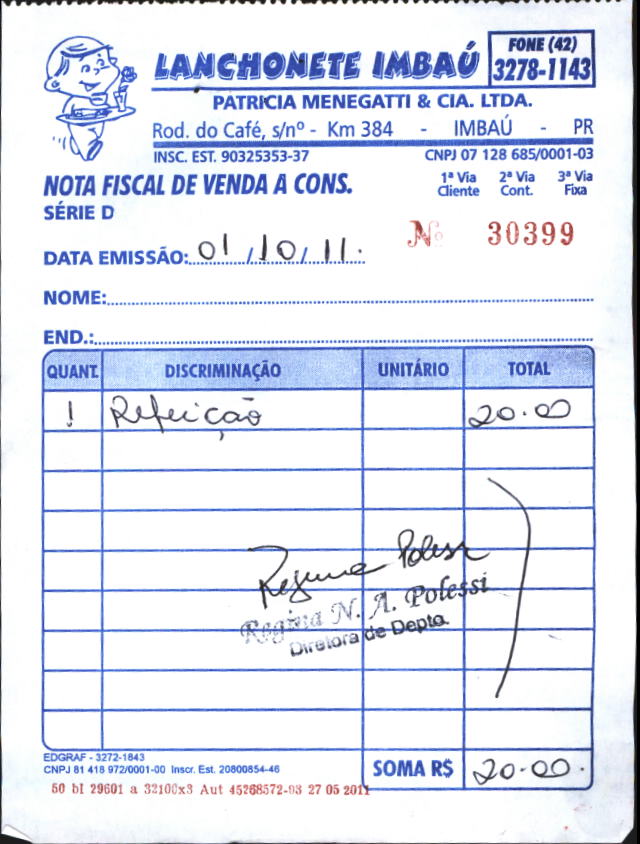 LANCHONETE IMBAÚ
FONE (42)
3278-1143
PATRICIA MENEGATTI & CIA. LTDA.
Rod. do Café, s/nº - Km 384 - IMBAÚ - PR
INSC. EST. 90325353-37 CNPJ 07 128 685/0001-03
NOTA FISCAL DE VENDA A CONS.
1ª Via Cliente 2ª Via Cont. 3ª Via Fixa
SÉRIE D
Nº 30399
DATA EMISSÃO: 01/10/11.
NOME:
END.:
QUANT. DISCRIMINAÇÃO UNITÁRIO TOTAL
1 Refeição 20.00
Regina Polessi
Regina N. A. Polessi
Diretora de Depto.
EDGRAF - 3272-1843
CNPJ 81 418 972/0001-00 Inscr. Est. 20800854-46
SOMA R$ 20.00.
50 bl 29601 a 32100x3 Aut 45268572-93 27 05 2011